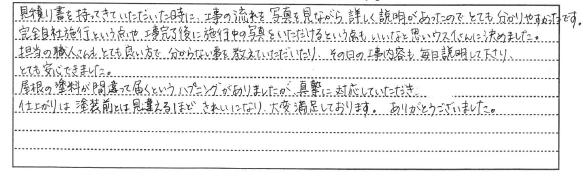 見積り書を持ってきていただいた時に、工事の流れを写真を見ながら詳しく説明があったのでとても分かりやすかったです。
完全自社施行という点や工事完了後に施行中の写真をいただけるという点もいいなと思いウスイさんに決めました。
担当の職人さんもとても良い方で分からない事を教えていただいたり、その日の工事内容も毎日説明して下さり、
とても安心できました。
屋根の塗料が間違って届くというハプニングがありましたが、真摯に対応していただき
仕上がりは塗装前とは見違えるほどきれいになり、大変満足しております。ありがとうございました。